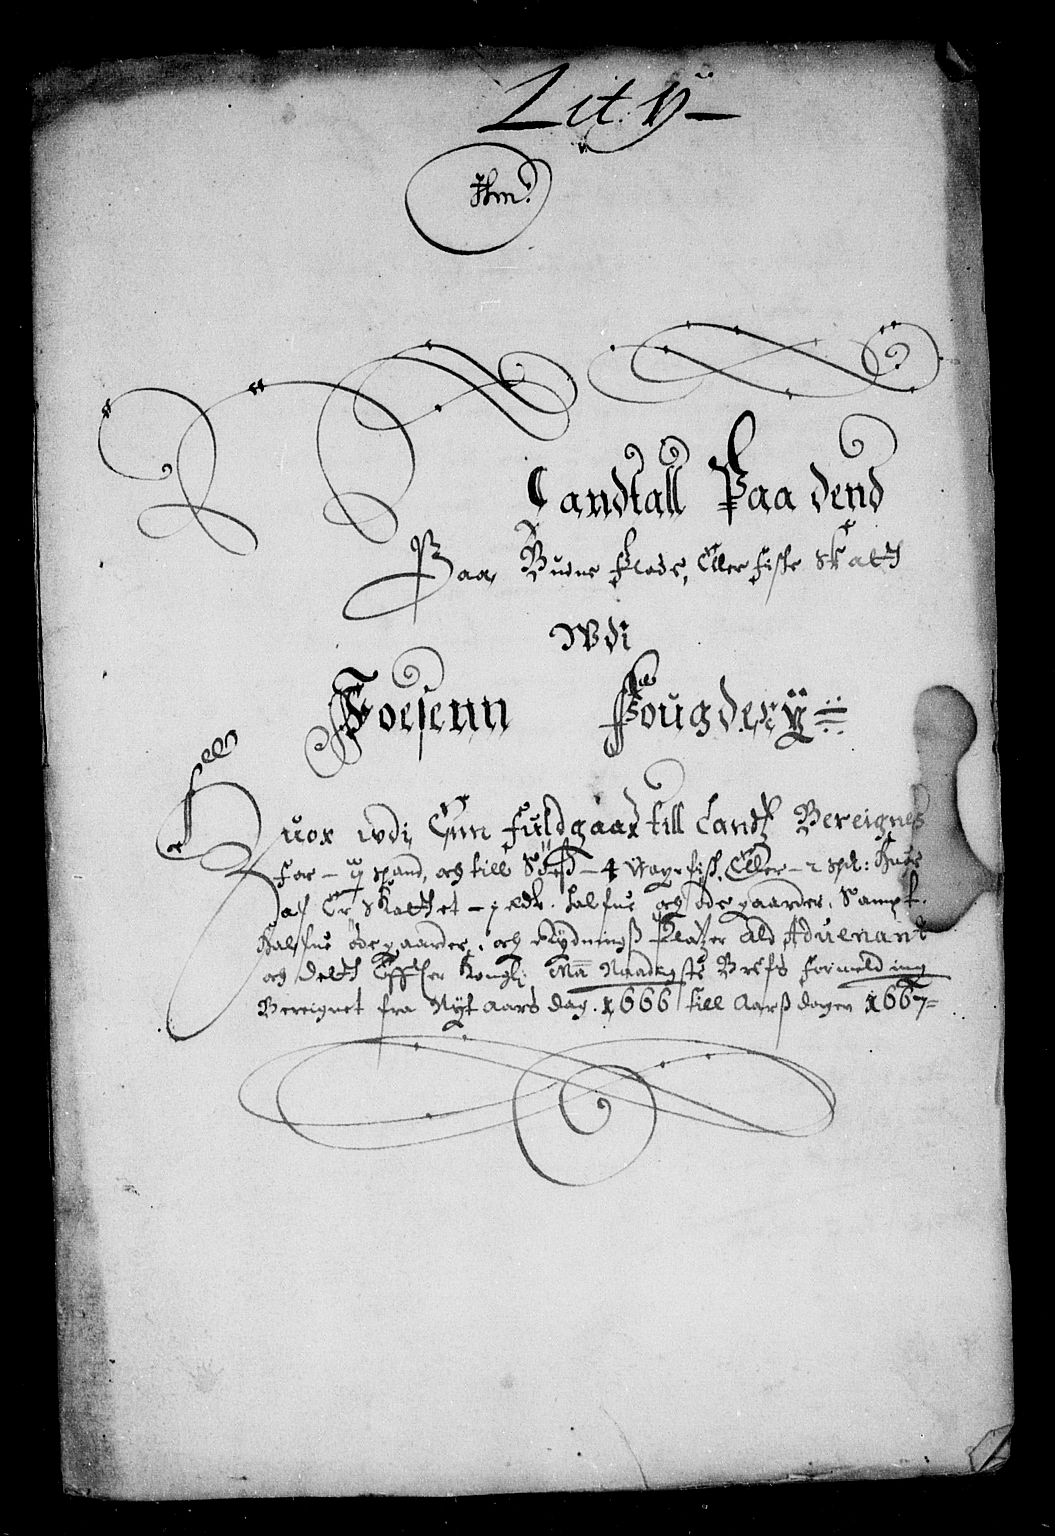 Lit. ÿ
Thm:
Landtall Paa dend
Paa Budne Flode, Eller fiske Skatt
Wdi
Foesenn Fougderÿ
Huor wdi Enn fuldgaar till Landz Bereignes
For - ij spand, och till Söeß - 4 Wogr fisk, Eller - 2 spd: Huor
aff Er Skattet - j rdr. halfue och öde gaarder, Sampt
Halfue ödegaarder, och Rydningß Pladtzer Ald Aduenant
och deltt Effter Kongl: Ma Naadigste Brefs formelding
Bereignet fra Nÿt aars dag 1666 till Aarß dagen 1667